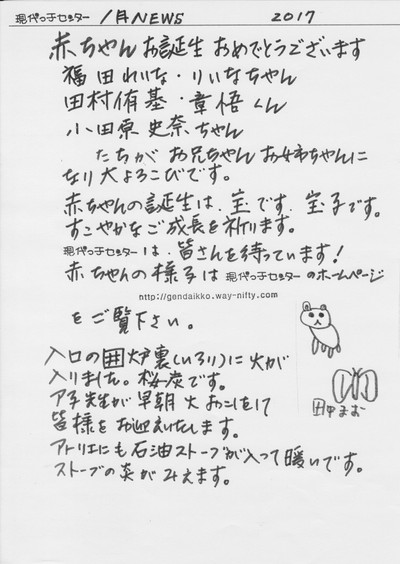 現代っ子センター 1月NEWS 2017
赤ちゃん お誕生 おめでとうございます
福田れいな・りいなちゃん
田村侑基・章悟くん
小田原史奈ちゃん
たちが お兄ちゃん お姉ちゃんに
なり大よろこびです。
赤ちゃんの誕生は、宝です。宝子です。
すこやかなご成長を祈ります。
現代っ子センターは、皆さんを待っています!
赤ちゃんの様子は 現代っ子センター のホームページ
http://gendaikko.way-nifty.com
をご覧下さい。
入口の囲炉裏(いろり)に火が
入りました。桜炭です。
ア子先生が早朝火おこしをして
皆様をお迎えいたします。
アトリエにも石油ストーブが入って暖いです。
ストーブの炎がみえます。
田中まお